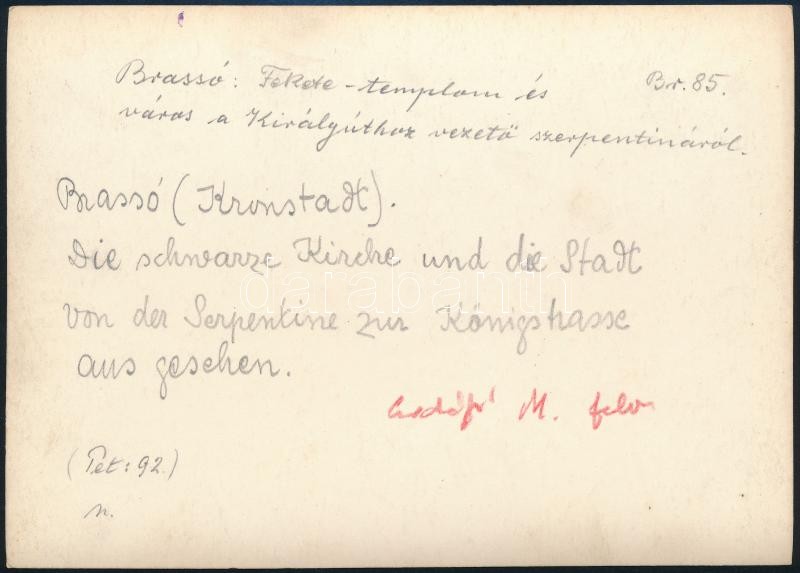 Brassó: Fekete-templom és Br. 85.
város a Királyúthoz vezető szerpentináról.
Brassó (Kronstadt).
Die schwarze Kirche und die Stadt
von der Serpentine zur Königstrasse
aus gesehen.
M. felv
(Pet: 92.)
n.
darabanth